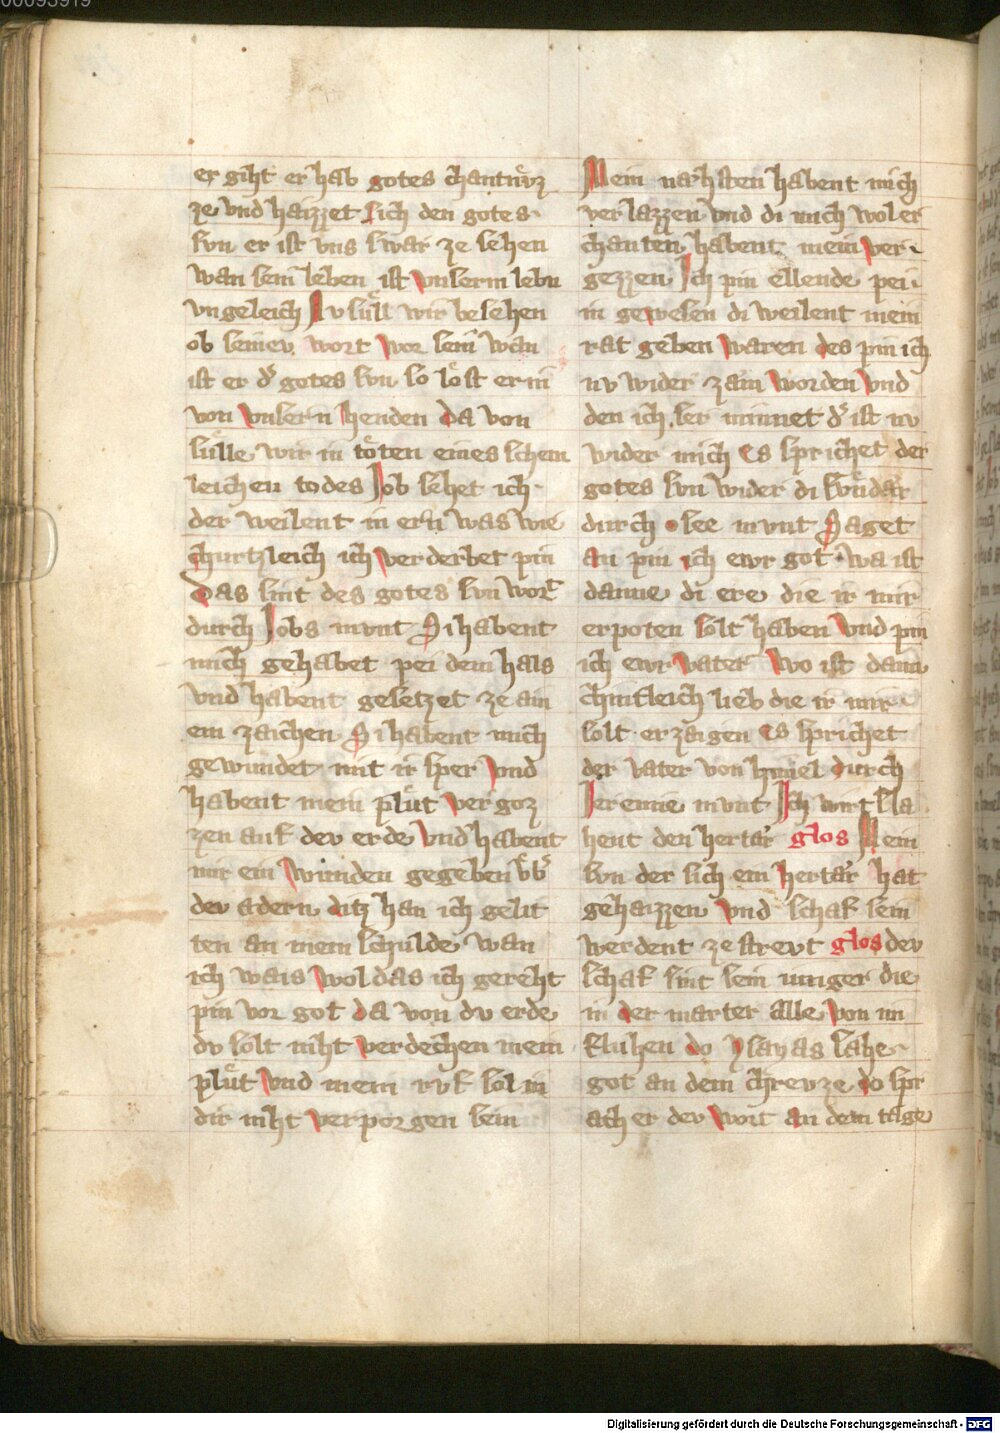 00093919
er giht er hab gotes chantnuͤrz
ze vnd haizzet sich den gotes
svn er ist vns swar ze sehen
wan sein leben ist vnserm lebn
vngeleich Nv suͤll wir besehen
ob seinev wort wor sein wan
ist er dˢ gotes svn so loͤst er in
von vnsern henden da von
suͤlle wir in toͤten eines schem
leichen todes Job sehet ich
der weilent in ern was wie
churtzleich ich verderbet pin
Das sint des gotes svn wort
durch Jobs mvnt Si habent
mich gehabet pei dem hals
vnd habent gesetzet ze ain
em zaichen Si habent mich
gewundet mit ir sper vnd
habent mein pluͤt vergoz
zen auf dev erde vnd habent
mir ein wunden gegeben vbˢ
dev adern ditz han ich gelit
ten an mein schulde wan
ich wais wol das ich gereht
pin vor got da von dv erde
dv solt niht verdechen mein
pluͤt vnd mein rvf sol in
dir niht verporgen sein
Mein nahsten habent mich
verlazzen vnd di mich wol er
chanten habent mein ver
gezzen Ich pin ellende pei
in gewesen di weilent mein
rat geben waren des pin ich
nv wider zaim worden vnd
den ich ser minnet dˢ ist nv
wider mich Es sprichet der
gotes svn wider di svndar
durch osee mvnt Saget
an pin ich ewr got wa ist
danne di ere die ir mir
erpoten solt haben vnd pin
ich ewr vater wo ist dann
chintleich lieb die ir mir
solt erzaigen Es sprichet
der vater von himel durch
Jeremie mvnt Ich wirt sla
hent den hertar glos Mein
svn der sich ein hertar hat
gehaizzen vnd schaf sein
werdent zestrevt glos dev
schaf sint sein iunger die
in der marter alle von im
fluhen do ysayas sahe
got an dem chrevze do spr
ach er dev wort an dem tage
Digitalisierung gefördert durch die Deutsche Forschungsgemeinschaft - DFG